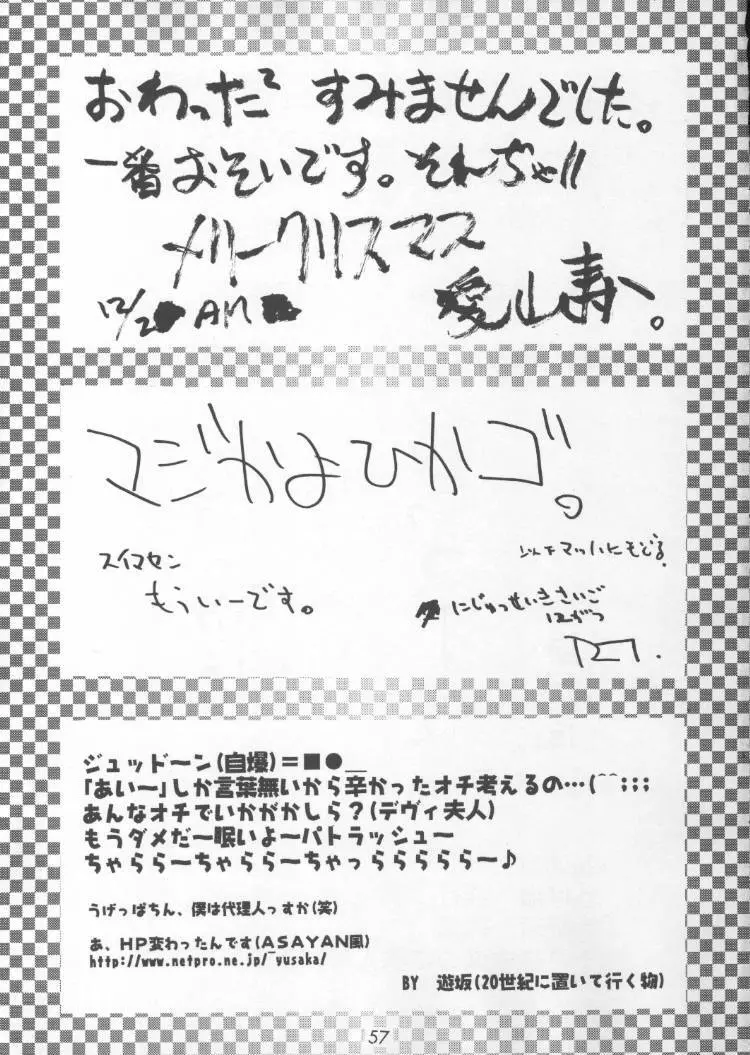 おわった すみませんでした。
一番おそいです。それぢゃ!!
メリークリスマス
12/2 AM
愛山寿へ。
マジかよひかゴ。
スイマセン
もういーです。
マッハにもどる
にじゅっせいきさいご
12がつ
ジュッドーン(自爆)＝■●＿
「あい～」しか言葉無いから辛かったオチ考えるの…(^^;;;
あんなオチでいかがかしら？(デヴィ夫人)
もうダメだ～眠いよ～パトラッシュ～
ちゃらら～ちゃらら～ちゃっらららららら～♪
うげっぱちん、僕は代理人っすか(笑)
あ、HP変わったんです(ASAYAN風)
http://www.netpro.ne.jp/~yusaka/
BY 遊坂(20世紀に置いて行く物)
57